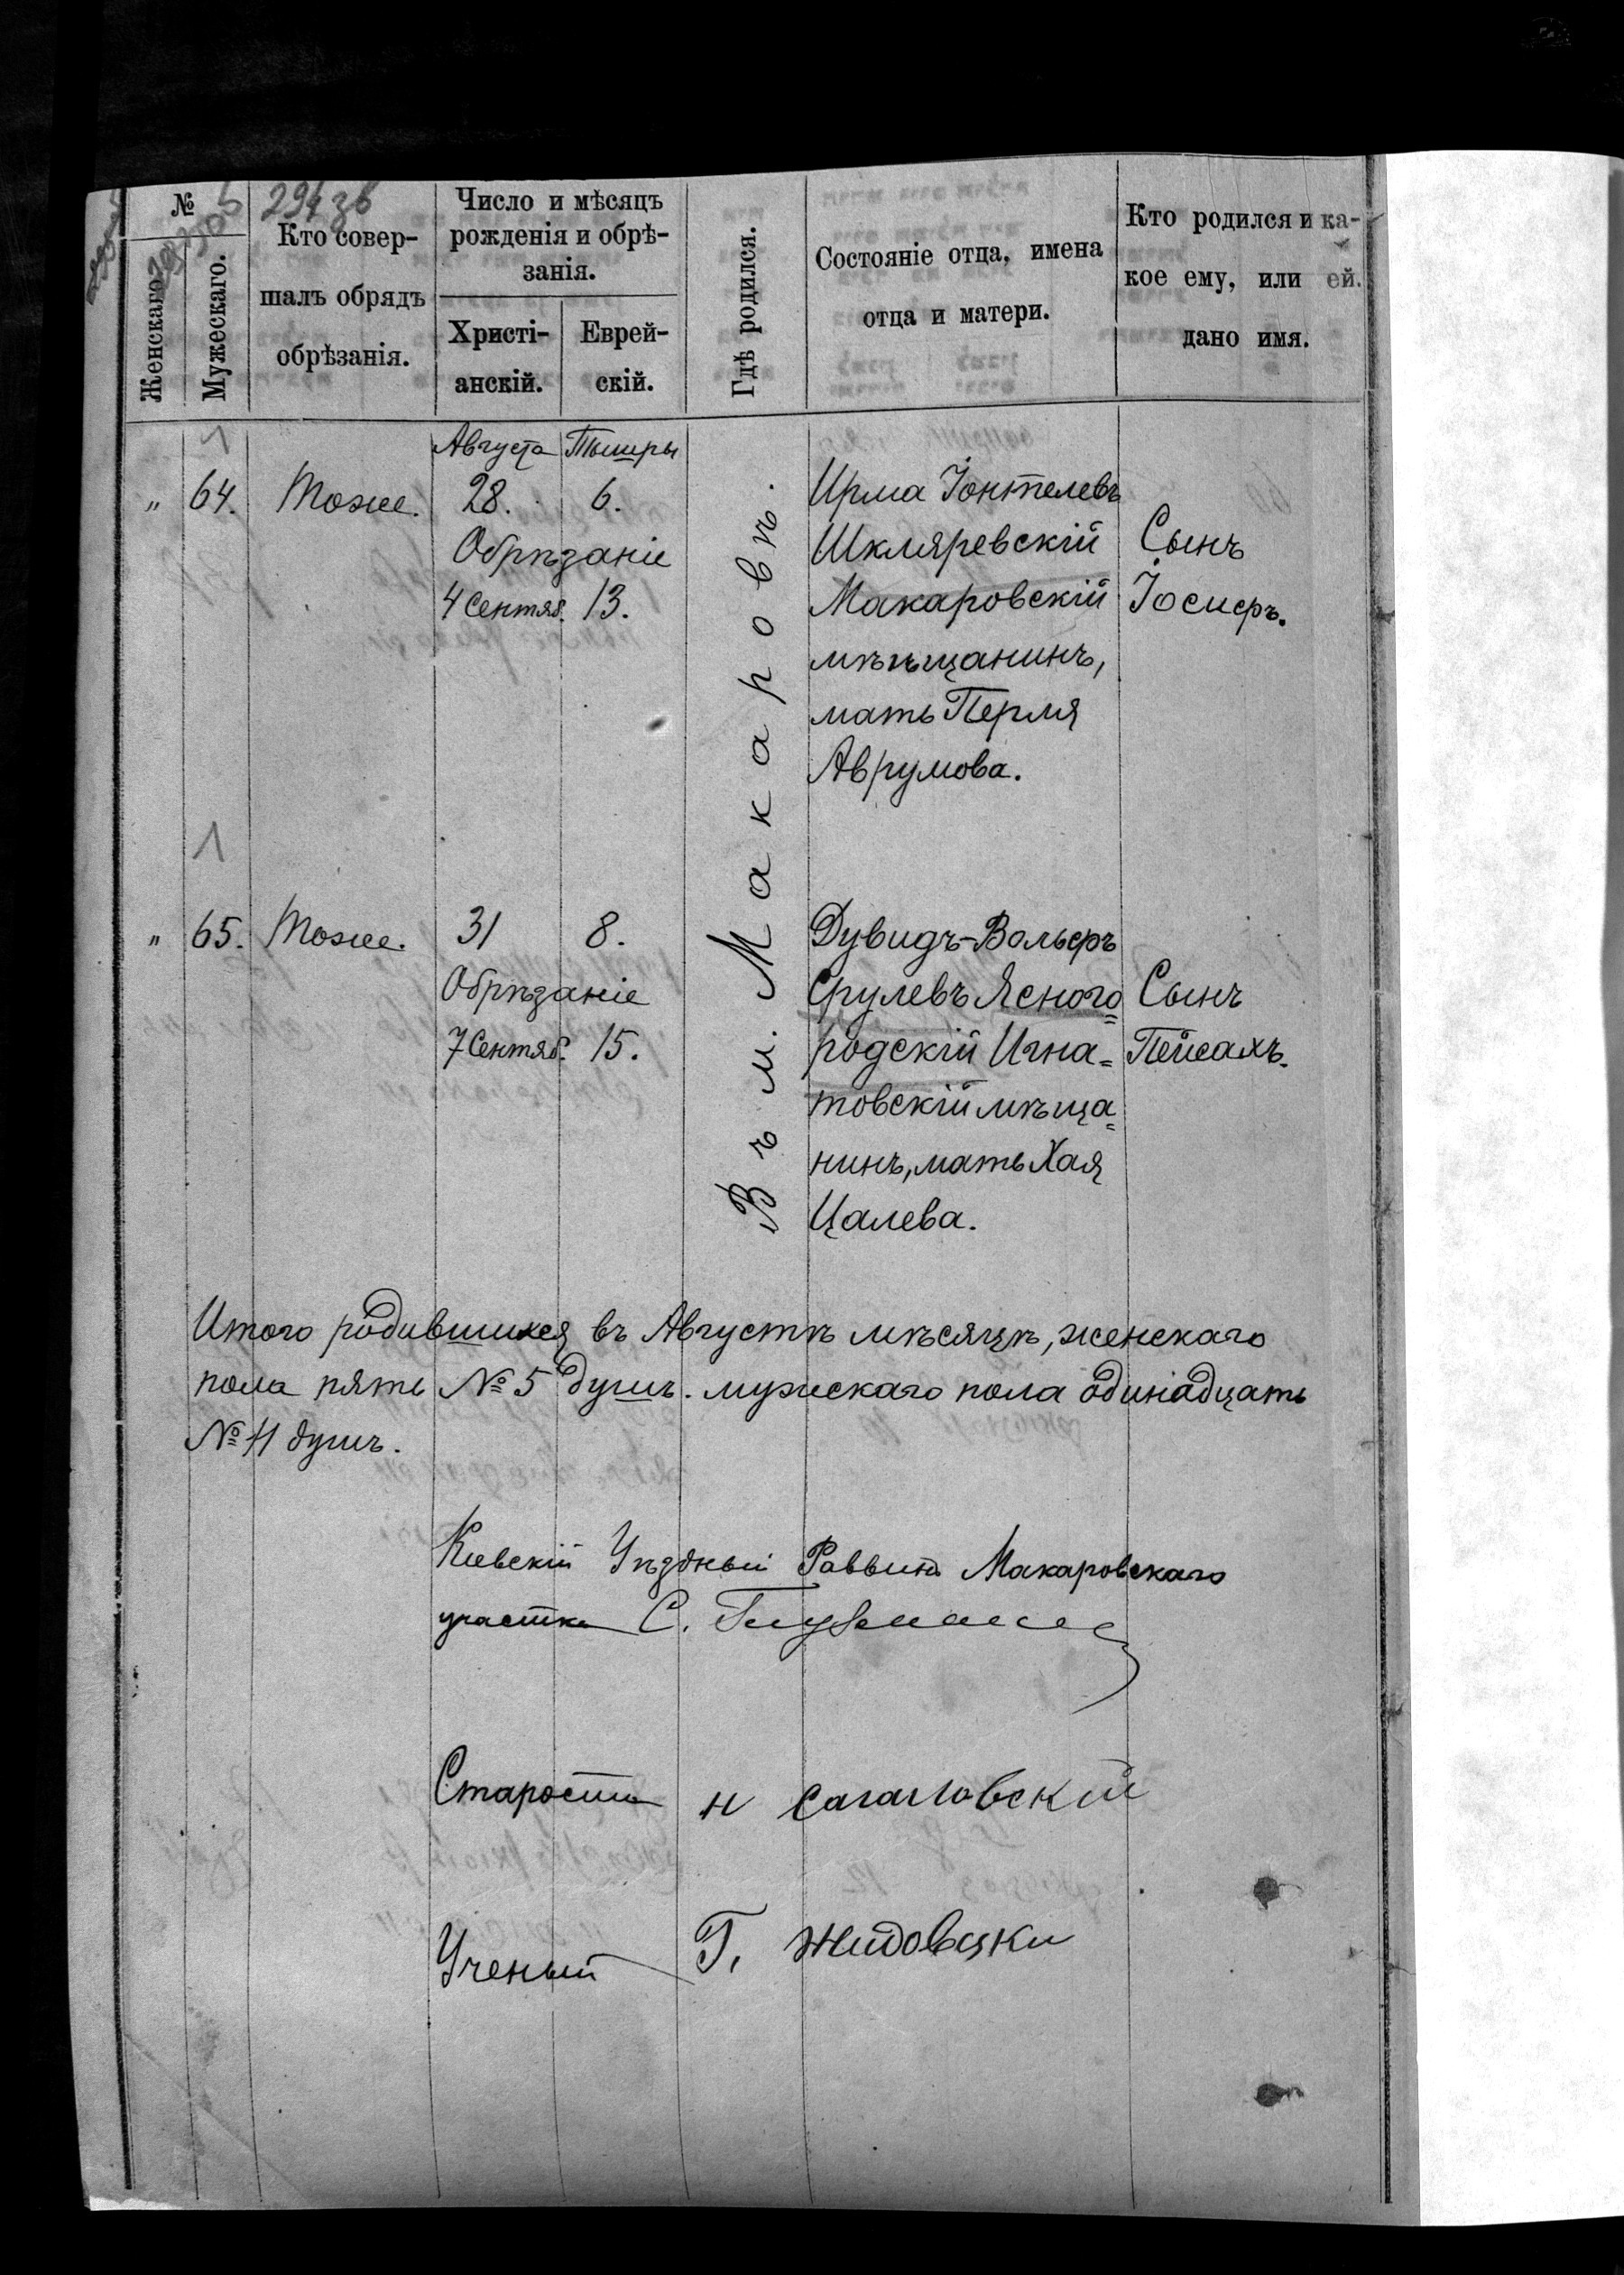 №
294 зв
Женскаго.
Мужескаго.
Кто совер-
шалъ обрядъ
обрѣзанія.
Число и мѣсяцъ
рожденія и обрѣ-
занія.
Христі-
анскій.
Еврей-
скій.
Гдѣ родился.
Состояніе отца, имена
отца и матери.
Кто родился и ка-
кое ему, или ей.
дано имя.
Августа Тышры
" 64. Тоже. 28. 6.
Обрѣзаніе
4 Сентяб. 13.
Въ м. Макаровѣ.
Ирма Іонтелевъ
Шкляревскій
Макаровскій
мѣщанинъ,
мать Перля
Аврумова.
Сынъ
Іосифъ.
" 65. Тоже. 31 8.
Обрѣзаніе
7 Сентяб. 15.
Дувидъ-Вольфъ
Срулевъ Ясного=
родскій Игна=
товскій мѣща=
нинъ, мать Хая
Цалева.
Сынъ
Пейсахъ.
Итого родившихся въ Августѣ мѣсяцѣ, женскаго
пола пять № 5 душъ. мужескаго пола одинадцать
№ 11 душъ.
Кіевскій Уѣздный Раввинъ Макаровскаго
участка С.
Староста Н Сагаловскій
Ученый Г. Жидовецки